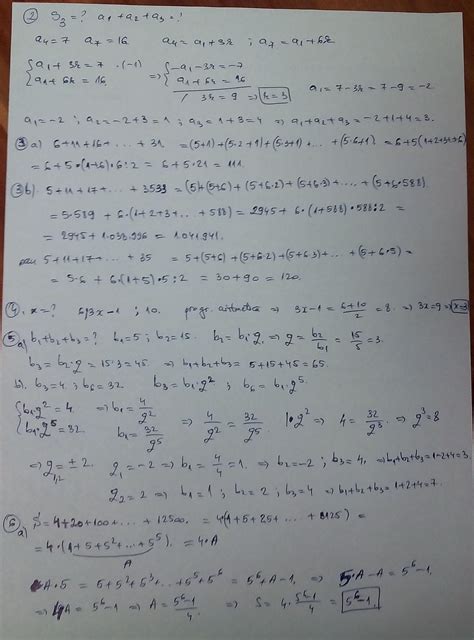 ② S₃=? a₁+a₂+a₃=?
a₄=7 a₇=16 a₄=a₁+3r ; a₇=a₁+6r
{a₁+3r=7 |·(-1) ⇒ {-a₁-3r=-7
{a₁+6r=16 {a₁+6r=16
/ 3r=9 ⇒ r=3 a₁=7-3r=7-9=-2
a₁=-2 ; a₂=-2+3=1 ; a₃=1+3=4 ⇒ a₁+a₂+a₃=-2+1+4=3.
③ a) 6+11+16+...+31 = (5+1)+(5·2+1)+(5·3+1)+...+(5·6+1) = 6+5(1+2+3+...+6)
= 6+5·(1+6)·6:2 = 6+5·21 = 111.
③b) 5+11+17+...+3533 = (5)+(5+6)+(5+6·2)+(5+6·3)+...+(5+6·588)
= 5·589 + 6·(1+2+3+...+588) = 2945+6·(1+588)·588:2 =
= 2945+1.038.996 = 1.041.941.
5+11+17+...+35 = 5+(5+6)+(5+6·2)+(5+6·3)+...+(5+6·5) =
= 5·6+6·(1+5)·5:2 = 30+90 = 120.
④. x-? 6;3x-1 ; 10. progr. aritmetica ⇒ 3x-1 = (6+10)/2 = 8 ⇒ 3x=9 ⇒ x=3
⑤ a) b₁+b₂+b₃=? b₁=5 ; b₂=15. b₂=b₁·g ⇒ g=b₂/b₁=15/5=3.
b₃=b₂·g=15·3=45 ⇒ b₁+b₂+b₃=5+15+45=65.
b). b₃=4 ; b₆=32 b₃=b₁·g² ; b₆=b₁·g⁵.
{b₁·g²=4 ⇒ b₁=4/g² ⇒ 4/g²=32/g⁵ |·g² ⇒ 4=32/g³ ⇒ g³=8
{b₁·g⁵=32 b₁=32/g⁵
⇒ g₁,₂=±2 g₁=-2 ⇒ b₁=4/4=1. ⇒ b₂=-2 ; b₃=4, ⇒ b₁+b₂+b₃=1-2+4=3.
g₂=2 ⇒ b₁=1 ; b₂=2 ; b₃=4 ⇒ b₁+b₂+b₃=1+2+4=7.
⑥ a) S=4+20+100+...+12500. = 4(1+5+25+...+3125) =
= 4·(1+5+5²+...+5⁵) = 4·A
A
A·5 = 5+5²+5³+...+5⁵+5⁶ = 5⁶+A-1, ⇒ 5·A-A=5⁶-1,
⇒ 4A=5⁶-1 ⇒ A=(5⁶-1)/4 ⇒ S=4·(5⁶-1)/4=5⁶-1